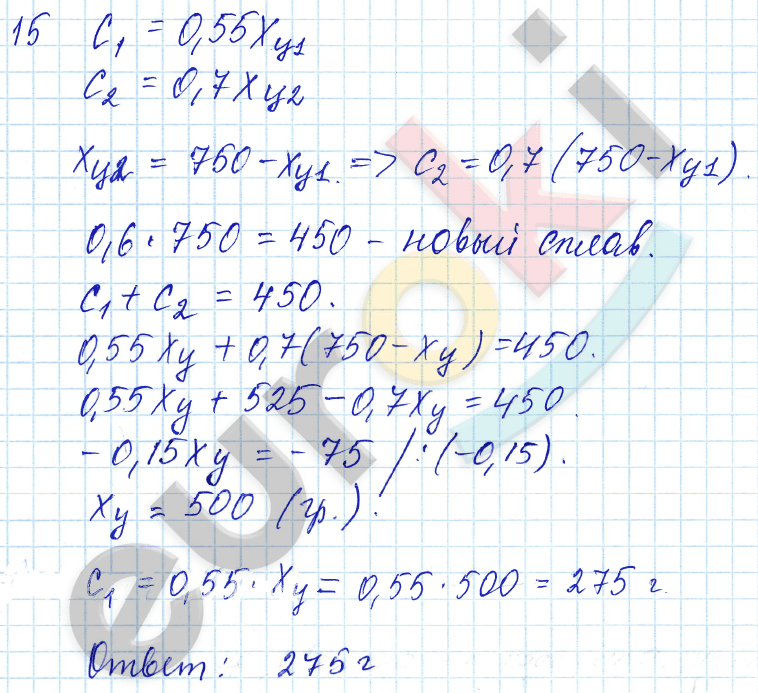 15 C₁ = 0,55Xy1
C₂ = 0,7Xy2
Xy2 = 750 - Xy1. => C₂ = 0,7(750 - Xy1).
0,6 · 750 = 450 - новый сплав.
C₁ + C₂ = 450.
0,55Xy + 0,7(750 - Xy) = 450.
0,55Xy + 525 - 0,7Xy = 450.
- 0,15Xy = - 75 / : (-0,15).
Xy = 500 (гр.).
C₁ = 0,55 · Xy = 0,55 · 500 = 275 г.
Ответ: 275 г
euroki